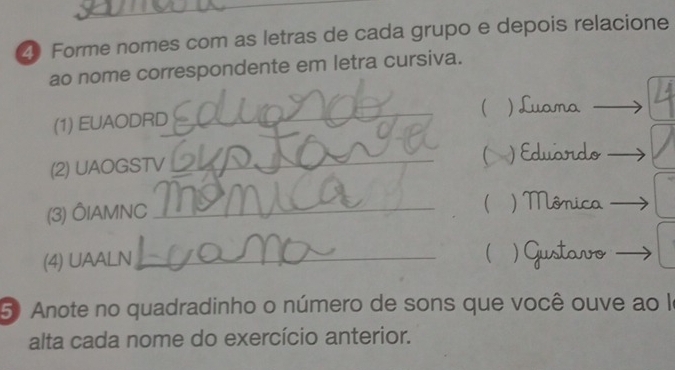 4 Forme nomes com as letras de cada grupo e depois relacione
ao nome correspondente em letra cursiva.
(1) EUAODRD Eduardo ( ) Luana → 4
(2) UAOGSTV ( ) Eduardo →
(3) ÔIAMNC Mônica ( ) Mônica →
(4) UAALN Luana ( ) Gustavo →
5 Anote no quadradinho o número de sons que você ouve ao
alta cada nome do exercício anterior.